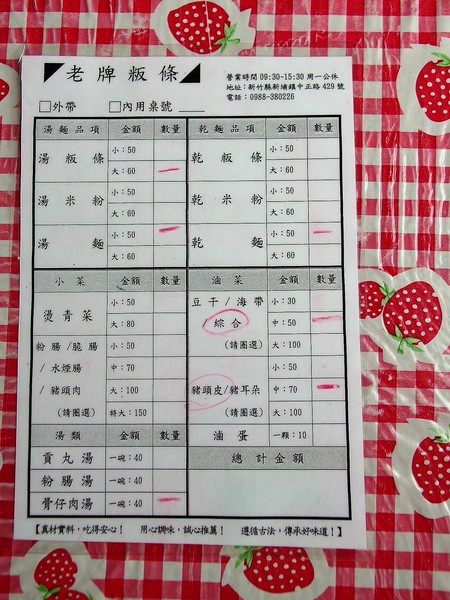 老牌粄條
營業時間 09:30-15:30 周一公休
地址：新竹縣新埔鎮中正路 429 號
電話：0988-380226
□外帶 □內用桌號
湯麵品項 金額 數量 乾麵品項 金額 數量
湯粄條 小：50 乾粄條 小：50
大：60 大：60
湯米粉 小：50 乾米粉 小：50
大：60 大：60
湯麵 小：50 乾麵 小：50
大：60 大：60
小菜 金額 數量 滷菜 金額 數量
燙青菜 小：50 豆干/海帶 小：30
大：80 /綜合 中：50
粉腸/脆腸 小：50 (請圈選) 大：100
/水煙腸 中：70 豬頭皮/豬耳朵 中：70
/豬頭肉 大：100
(請圈選) 特大：150 (請圈選) 大：100
湯類 金額 數量 滷蛋 一顆：10
貢丸湯 一碗：40 總計金額
粉腸湯 一碗：40
骨仔肉湯 一碗：40
【真材實料，吃得安心！ 用心調味，誠心推薦！ 遵循古法，傳承好味道！】